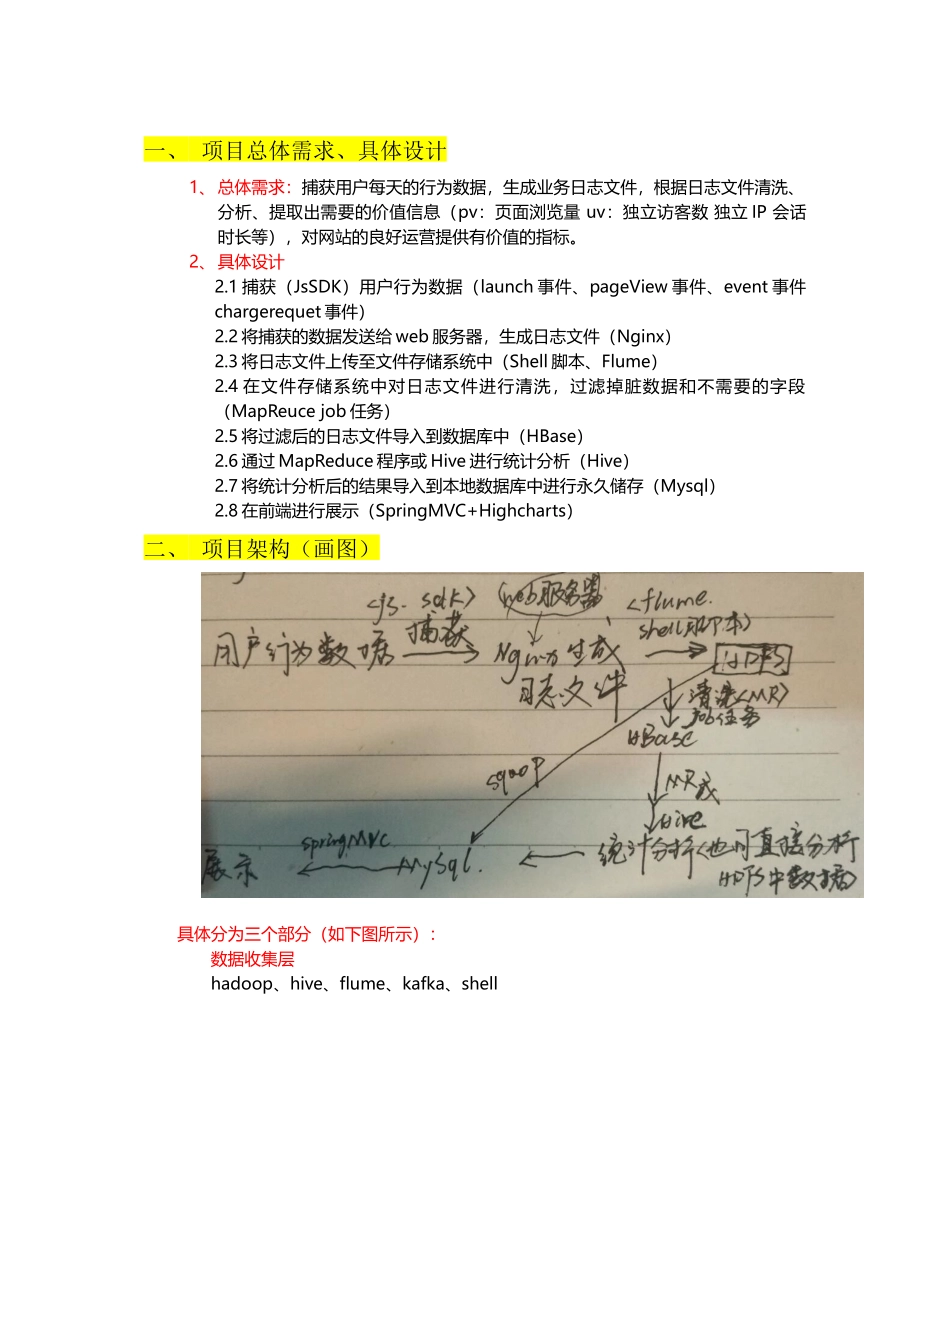 一、 项目总体需求、具体设计
1、总体需求：捕获用户每天的行为数据，生成业务日志文件，根据日志文件清洗、
分析、提取出需要的价值信息（pv：页面浏览量 uv：独立访客数 独立 IP 会话
时长等），对网站的良好运营提供有价值的指标。
2、具体设计
2.1 捕获（JsSDK）用户行为数据（launch 事件、pageView 事件、event 事件
chargerequet 事件）
2.2 将捕获的数据发送给 web 服务器，生成日志文件（Nginx）
2.3 将日志文件上传至文件存储系统中（Shell 脚本、Flume）
2.4 在文件存储系统中对日志文件进行清洗，过滤掉脏数据和不需要的字段
（MapReuce job 任务）
2.5 将过滤后的日志文件导入到数据库中（HBase）
2.6 通过 MapReduce 程序或 Hive 进行统计分析（Hive）
2.7 将统计分析后的结果导入到本地数据库中进行永久储存（Mysql）
2.8 在前端进行展示（SpringMVC+Highcharts）
二、 项目架构（画图）
<js. sdk> (web服务器 <flume.
shell脚本>
用户行为数据 捕获 Nginx生成
日志文件
HDFS
清洗<MR>
Job任务
HBase
sqoop
MR或
Hive
展示 springMVC MySql. 统计分析<也可直接分析
HDFS中数据>
具体分为三个部分（如下图所示）：
数据收集层
hadoop、hive、flume、kafka、shell